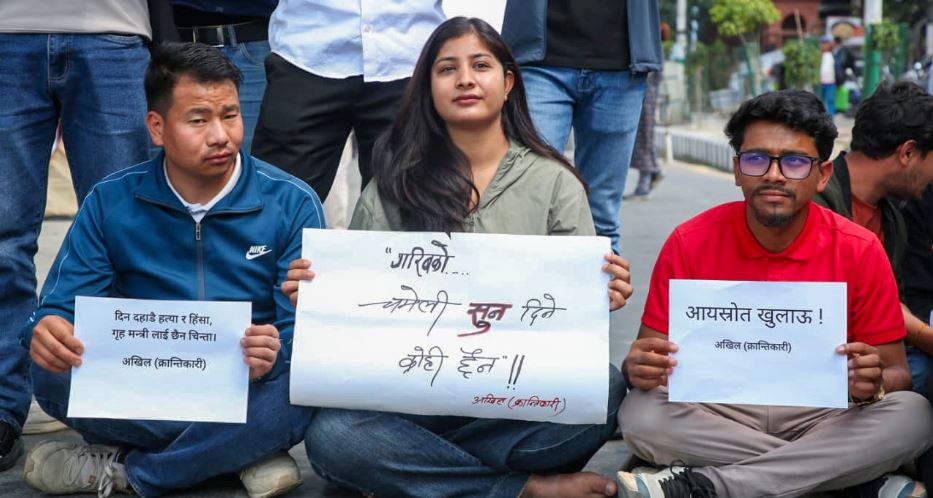 दिन दहाडै हत्या र हिंसा,
गृह मन्त्री लाई छैन चिन्ता।।
अखिल (क्रान्तिकारी)
NIKE
"गरिबको....
चमेली सुन दिने
कोही छैन"!!
अखिल (क्रान्तिकारी)
आयस्रोत खुलाऊ !
अखिल (क्रान्तिकारी)